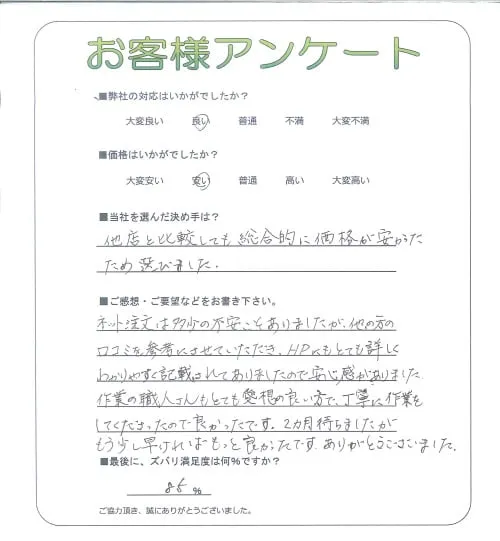 お客様アンケート
■弊社の対応はいかがでしたか？
大変良い 良い 普通 不満 大変不満
■価格はいかがでしたか？
大変安い 安い 普通 高い 大変高い
■当社を選んだ決め手は？
他店と比較しても総合的に価格が安かった
ため選びました.
■ご感想・ご要望などをお書き下さい。
ネット注文は多少の不安こそありましたが、他の方の
口コミを参考にさせていただき、HPにもとても詳しく
わかりやすく記載されてありましたので安心感がありました
作業の職人さんもとても愛想の良い方で、丁寧に作業を
してくださったので良かったです。2カ月待ちましたが
もう少し早ければもっと良かったです。ありがとうございました。
■最後に、ズバリ満足度は何％ですか？
85 %
ご協力頂き、誠にありがとうございました。